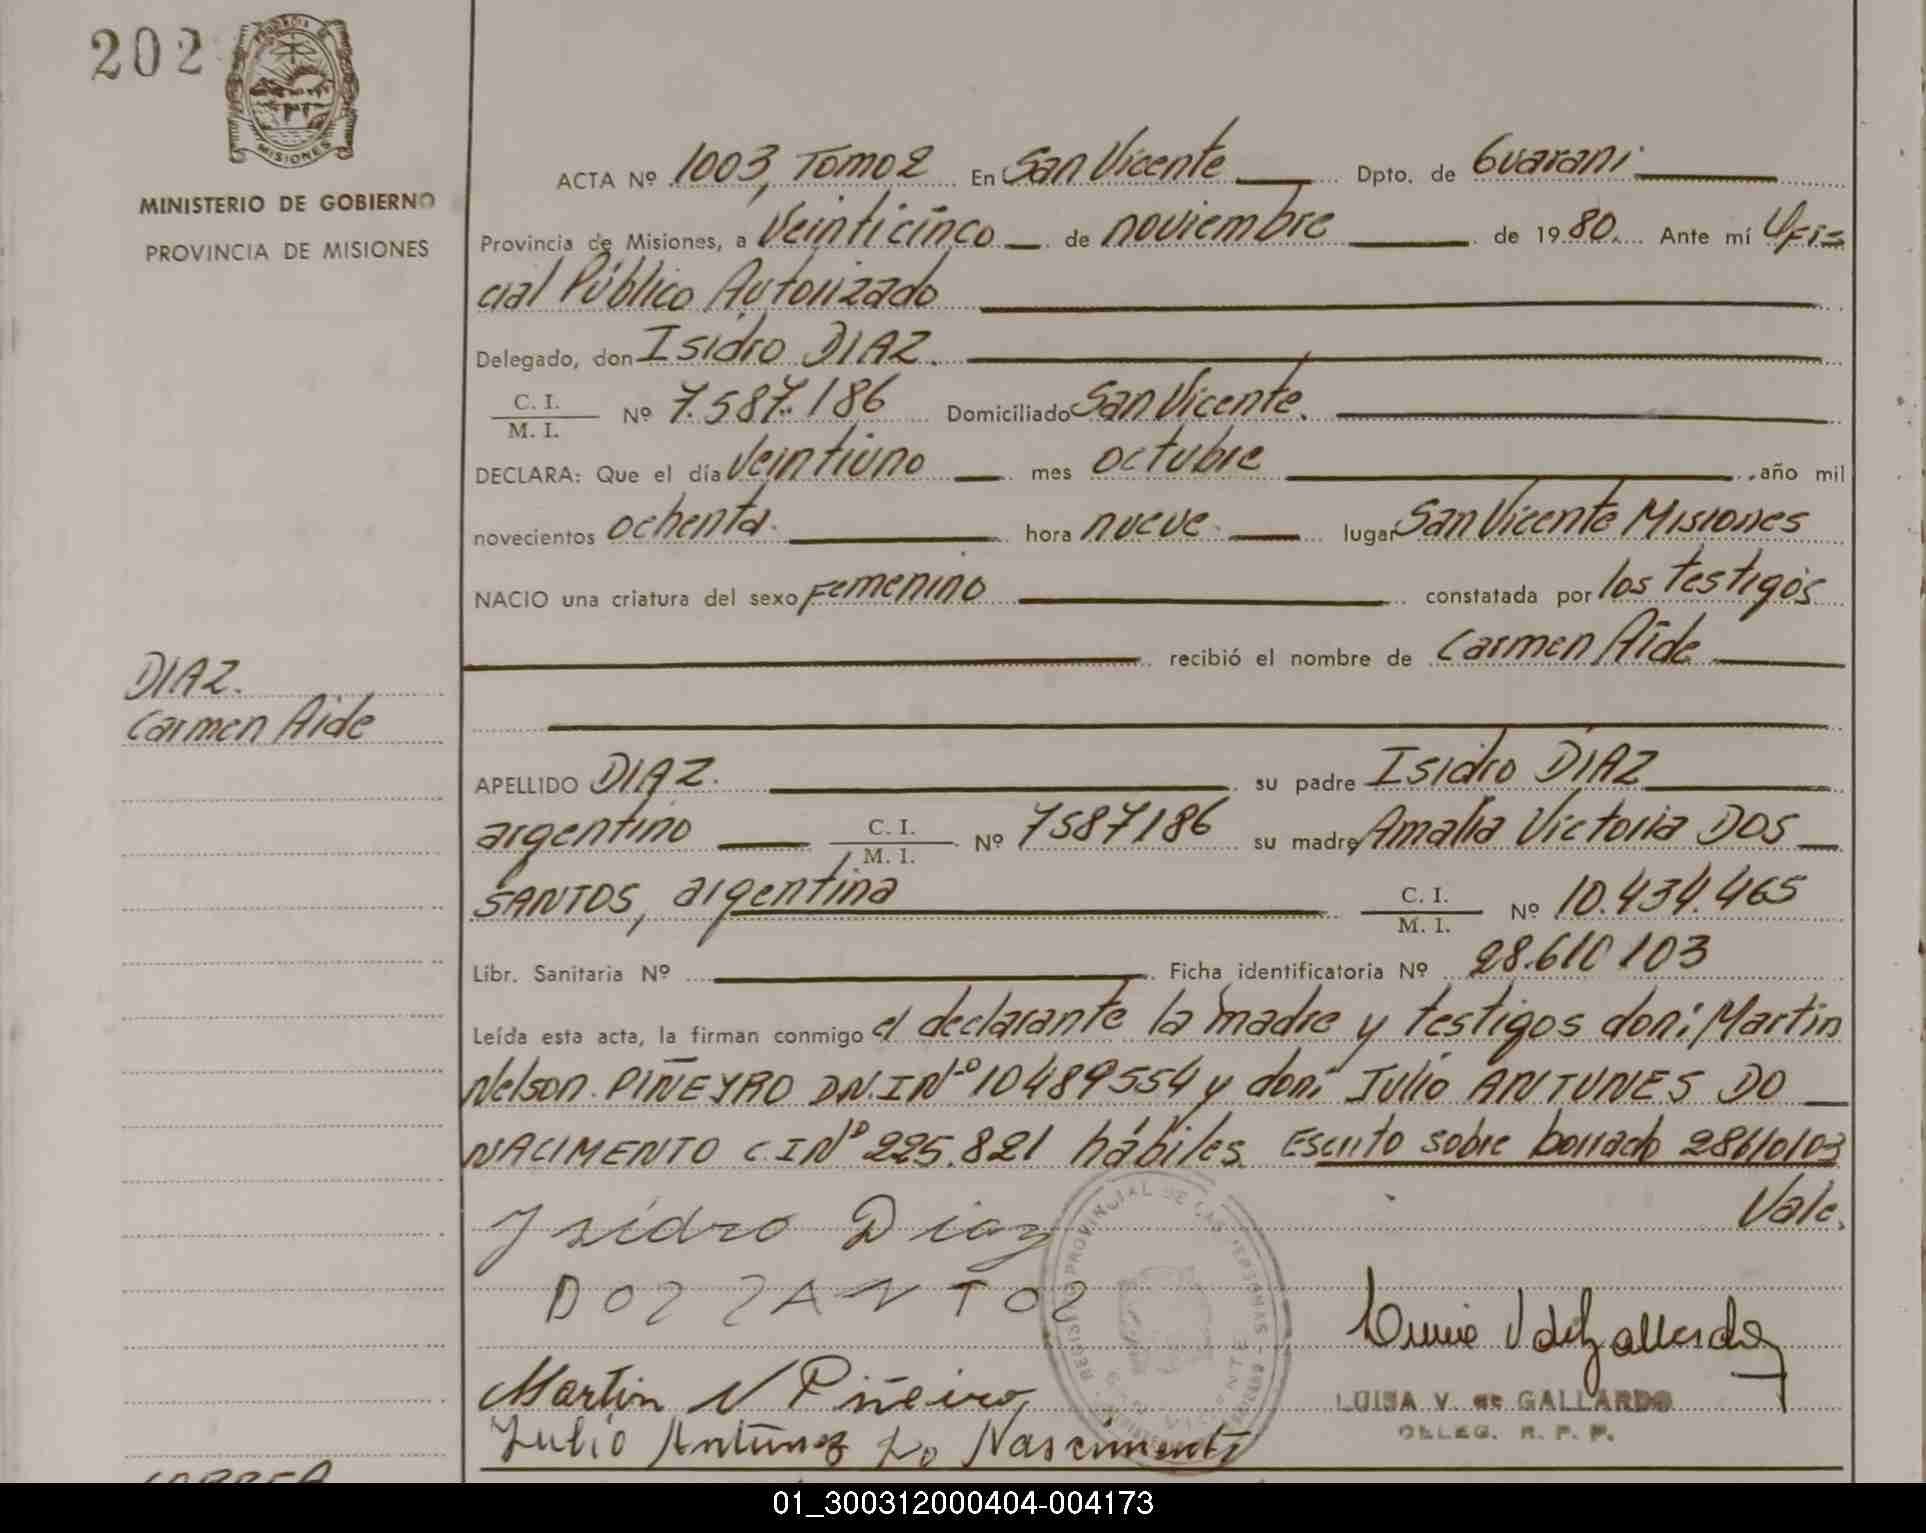 202
PROVINCIA DE
MISIONES
MINISTERIO DE GOBIERNO
PROVINCIA DE MISIONES
ACTA Nº 1003, Tomo 2 En San Vicente Dpto. de Guarani
Provincia de Misiones, a Veinticinco de noviembre de 1980. Ante mí Ofi=
cial Público Autorizado
Delegado, don Isidro DIAZ.
C. I.
M. I.
Nº 7.587.186 Domiciliado San Vicente.
DECLARA: Que el día Veintiuno mes octubre año mil
novecientos ochenta. hora nueve lugar San Vicente Misiones
NACIO una criatura del sexo Femenino constatada por los testigos
recibió el nombre de Carmen Aide
DIAZ.
Carmen Aide
APELLIDO DIAZ. su padre Isidro DIAZ
argentino C. I. M. I. Nº 7587186 su madre Amalia Victoria DOS
SANTOS, argentina C. I. M. I. Nº 10.434.465
Libr. Sanitaria Nº Ficha identificatoria Nº 28.610.103
Leída esta acta, la firman conmigo el declarante la madre y testigos don: Martin
Nelson PIÑEYRO D.N.I Nº 10489554 y don: Julio ANTUNES DO
NACIMENTO C.I Nº 225.821 hábiles. Escrito sobre borrado 28610103
Vale.
Isidro Diaz
DOS SANTOS
Martin N Piñeiro
Julio Antunez Do Nascimento
REGISTRO PROVINCIAL DE LAS PERSONAS
LUISA V. de GALLARDO
DELEG. R. P. P.
CORREA
01_300312000404-004173